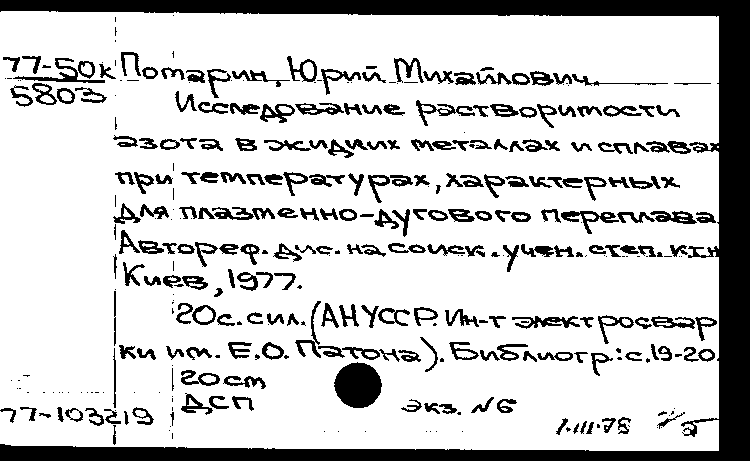 77-50к Потарин, Юрий Михайлович.
5803 Исследование растворимости
азота в жидких металлах и сплавах
при температурах, характерных
для плазменно-дугового переплава.
Автореф. дис. на соиск. учен. степ. к.т.н
Киев, 1977.
20с. сил. (АН УССР. Ин-т электросвар
ки им. Е.О. Патона). Библиогр.: с. 19-20.
20 ст
ДСП экз. №6
77-103219 1.III.78